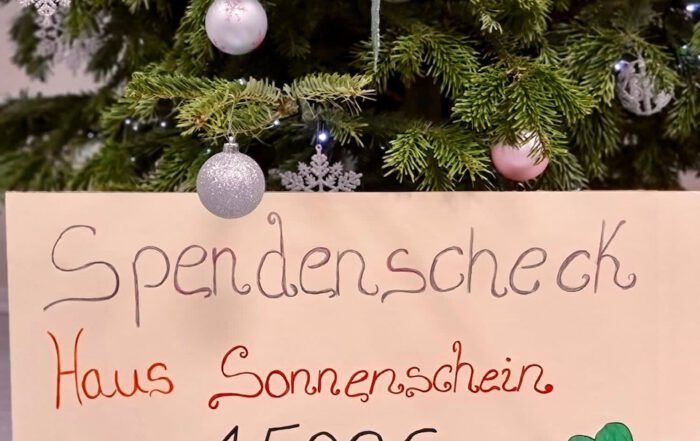 Spendenscheck
Haus Sonnenschein